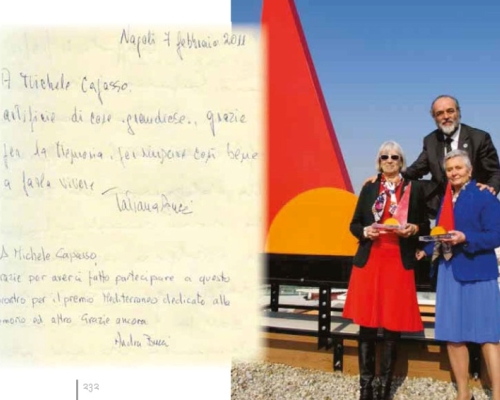 Napoli 7 febbraio 2011
A Michele Capasso,
artefice di cose grandiose, grazie
per la Memoria, per riuscire così bene
a farla vivere
Tatiana Bucci
A Michele Capasso,
grazie per averci fatto partecipare a questo
incontro per il premio Mediterraneo dedicato alla
memoria ed altro. Grazie ancora
Andra Bucci
232